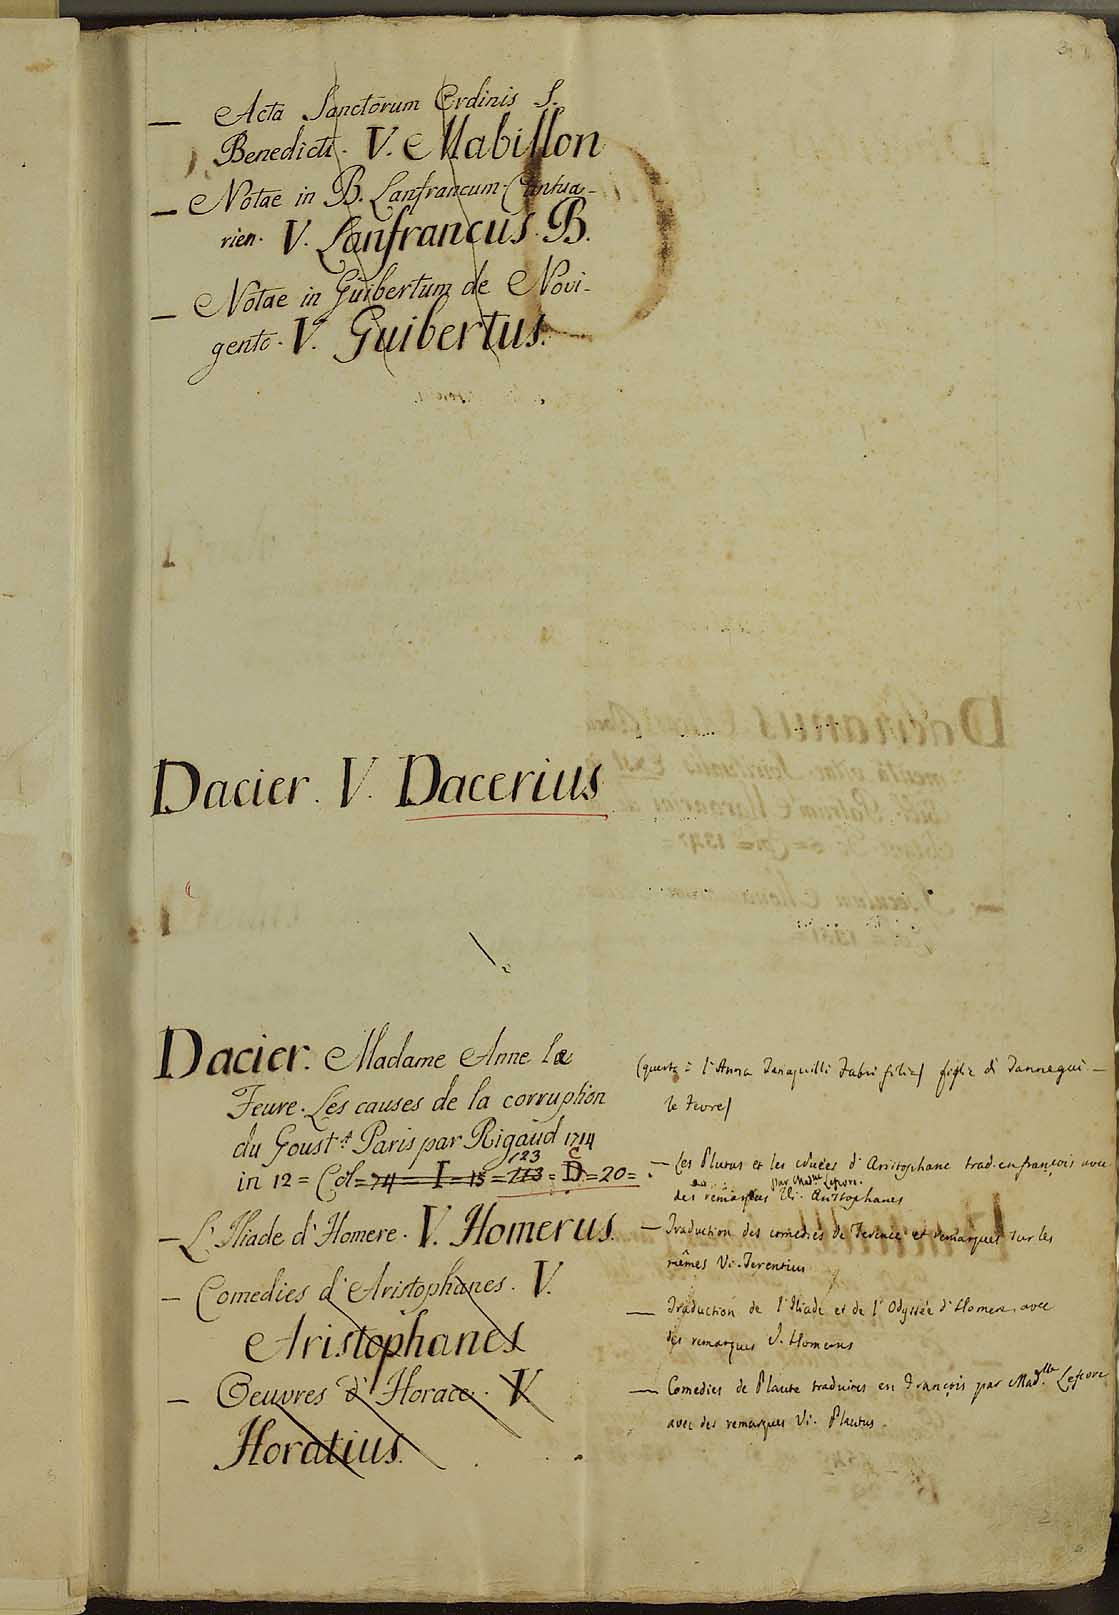 — Acta Sanctorum Ordinis S.
Benedicti. V. Mabillon
— Notae in B. Lanfrancum Cantua-
rien. V. Lanfrancus. B.
— Notae in Guibertum de Novi-
gento. V. Guibertus.
Dacier. V. Dacerius
Dacier. Madame Anne le
Feure. Les causes de la corruption
du Goust. Paris par Rigaud 1714
123 C
in 12 = Col = 74 = I = 15 = 113 = D = 20 =
— L'Iliade d'Homere. V. Homerus.
— Comedies d'Aristophanes. V.
Aristophanes
— Oeuvres d'Horace. V.
Horatius.
(questa è l'Anna Tanaquilli Fabri filia) figlia di Tannegui —
le Fevre)
— Les Plutus et les Nuées d'Aristophane trad. en françois avec
par Mad.lle Lefevre.
des remarques Vi. Aristophanes
— Traduction des comedies de Terence et remarques sur les
mêmes Vi. Terentius
— Traduction de l'Iliade et de l'Odyssée d'Homere, avec
des remarques V. Homerus
— Comedies de Plaute traduites en François par Mad.lle Lefevre
avec des remarques Vi. Plautus.